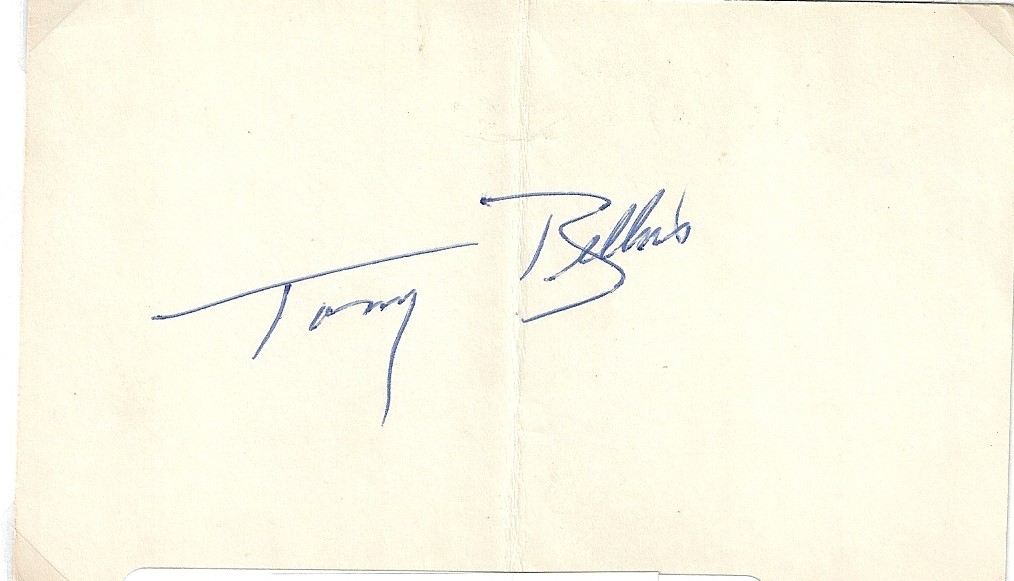 Tony Bellus